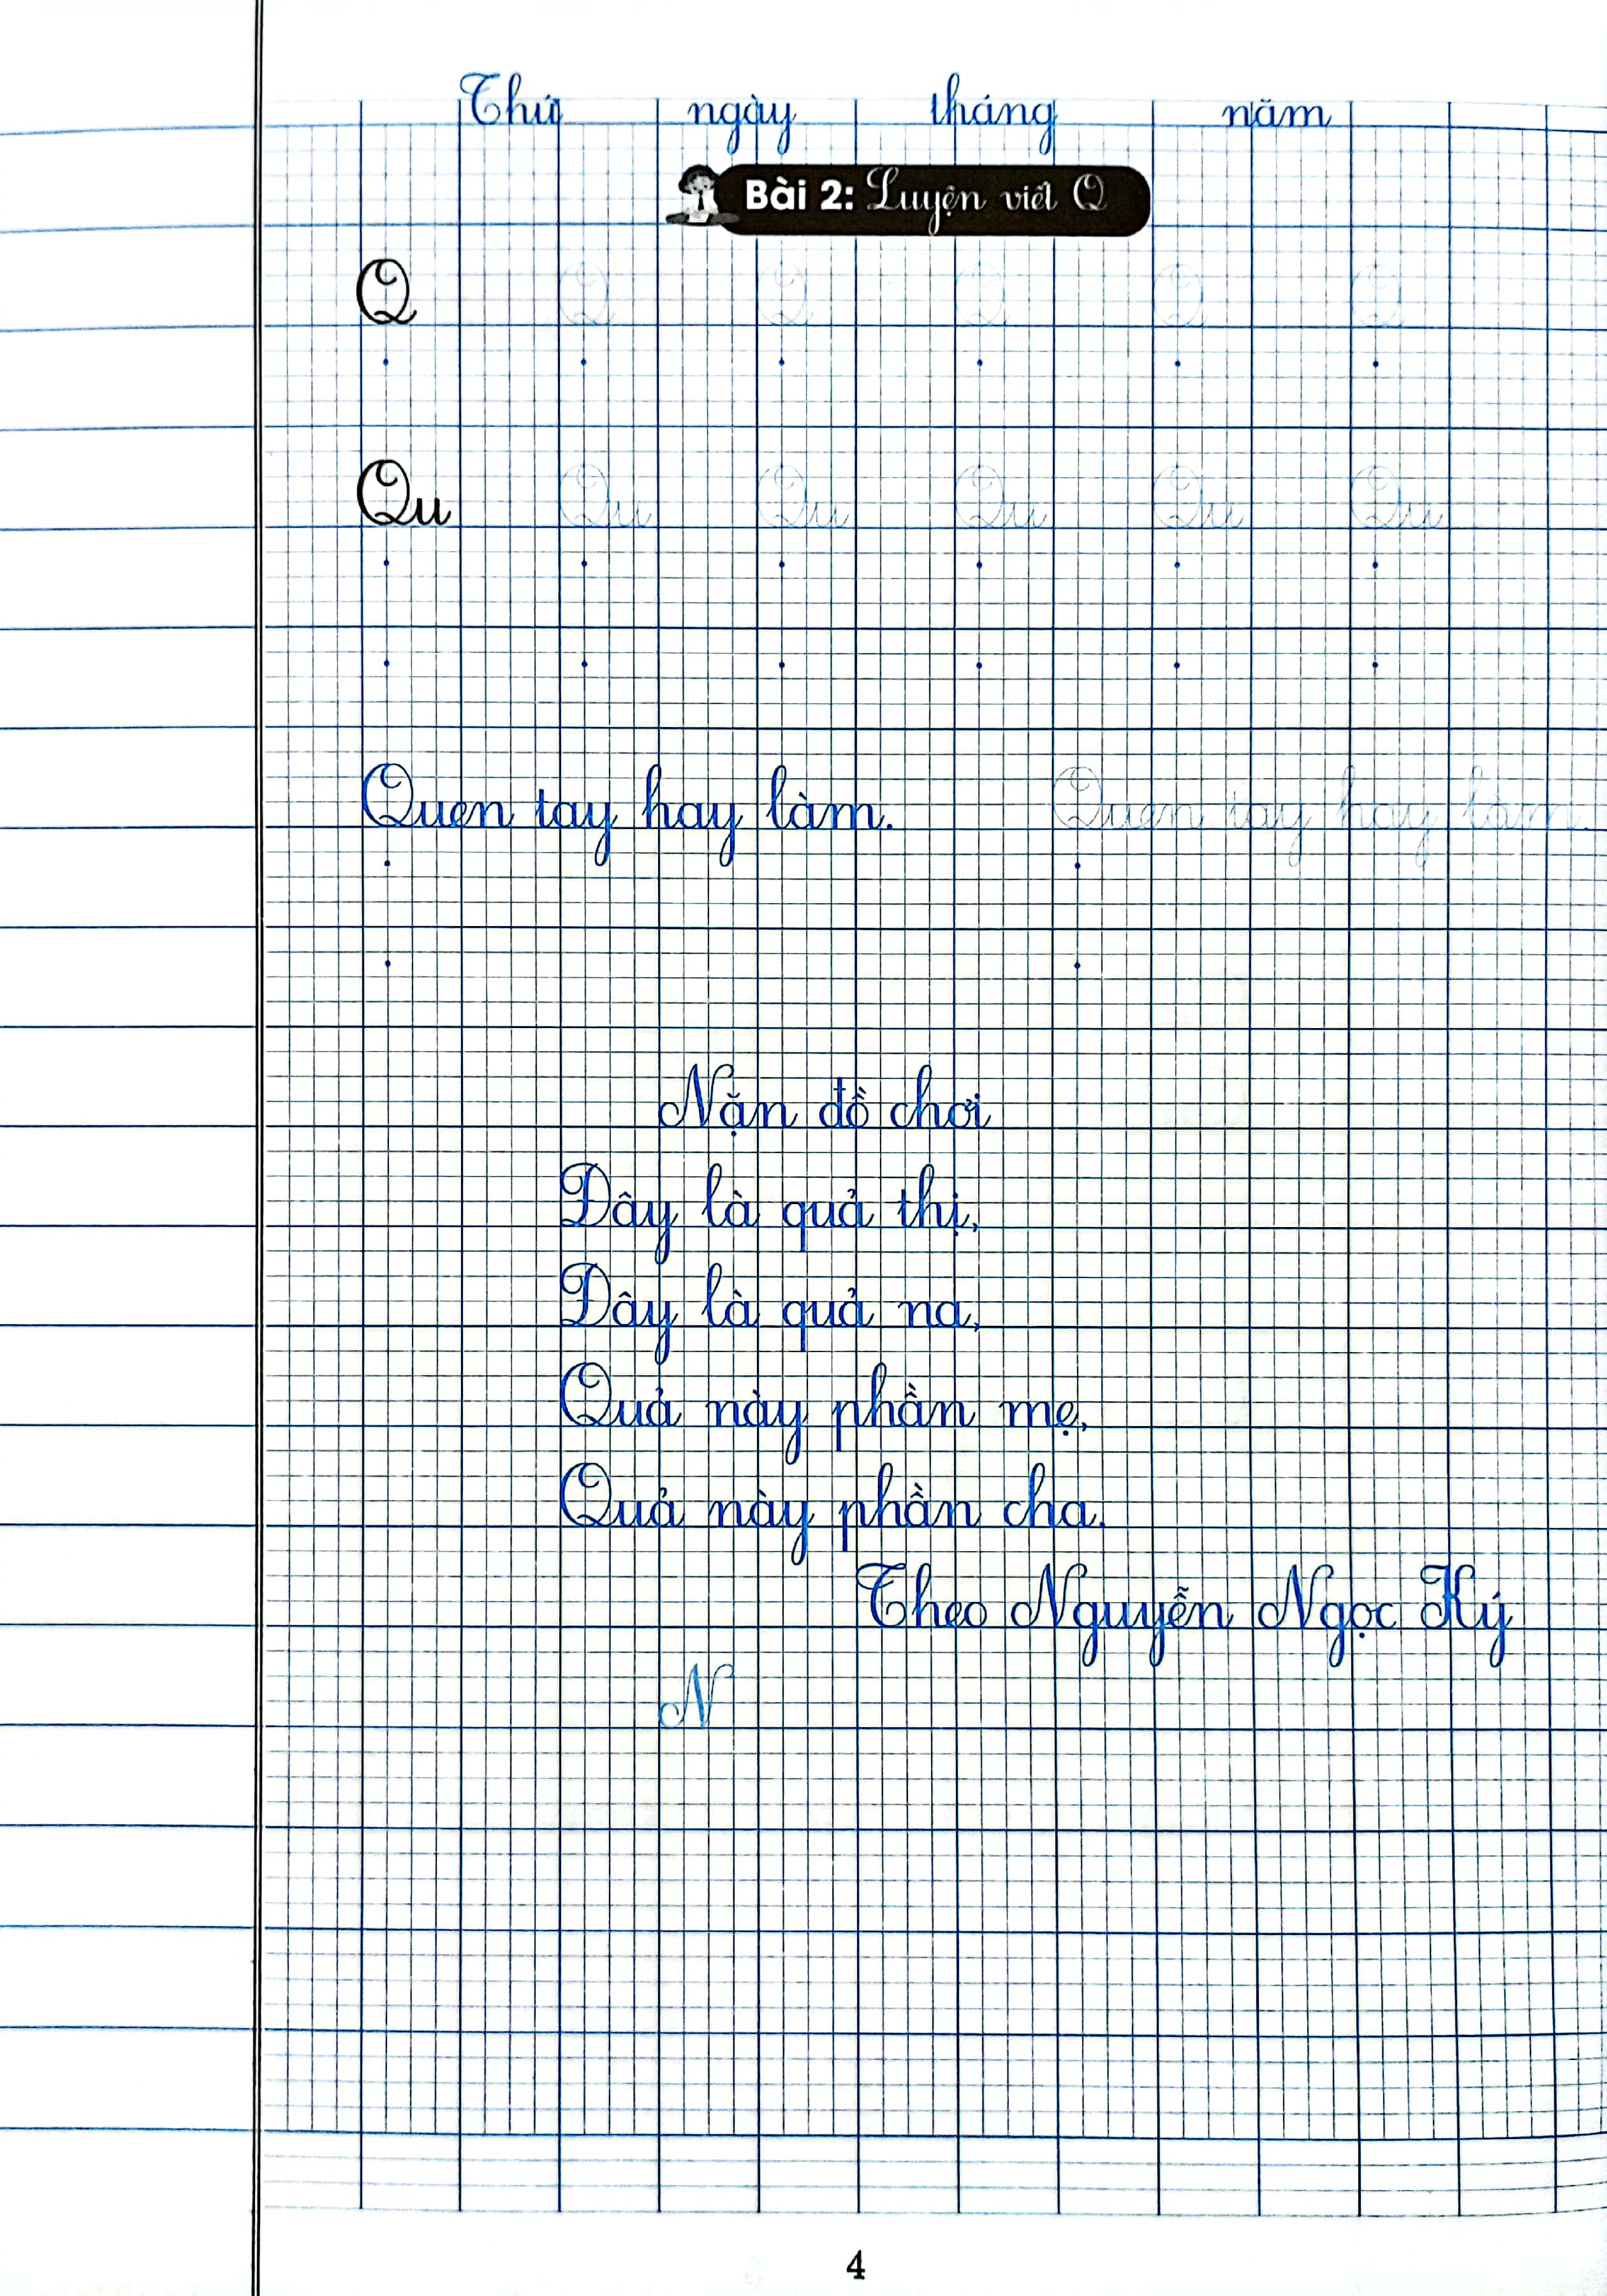 Thứ ngày tháng năm
Bài 2: Luyện viết Q
Q Q Q Q Q Q
Qu Qu Qu Qu Qu Qu
Quen tay hay làm. Quen tay hay làm.
Nặn đồ chơi
Đây là quả thị,
Đây là quả na,
Quả này phần mẹ,
Quả này phần cha.
Theo Nguyễn Ngọc Ký
N
4